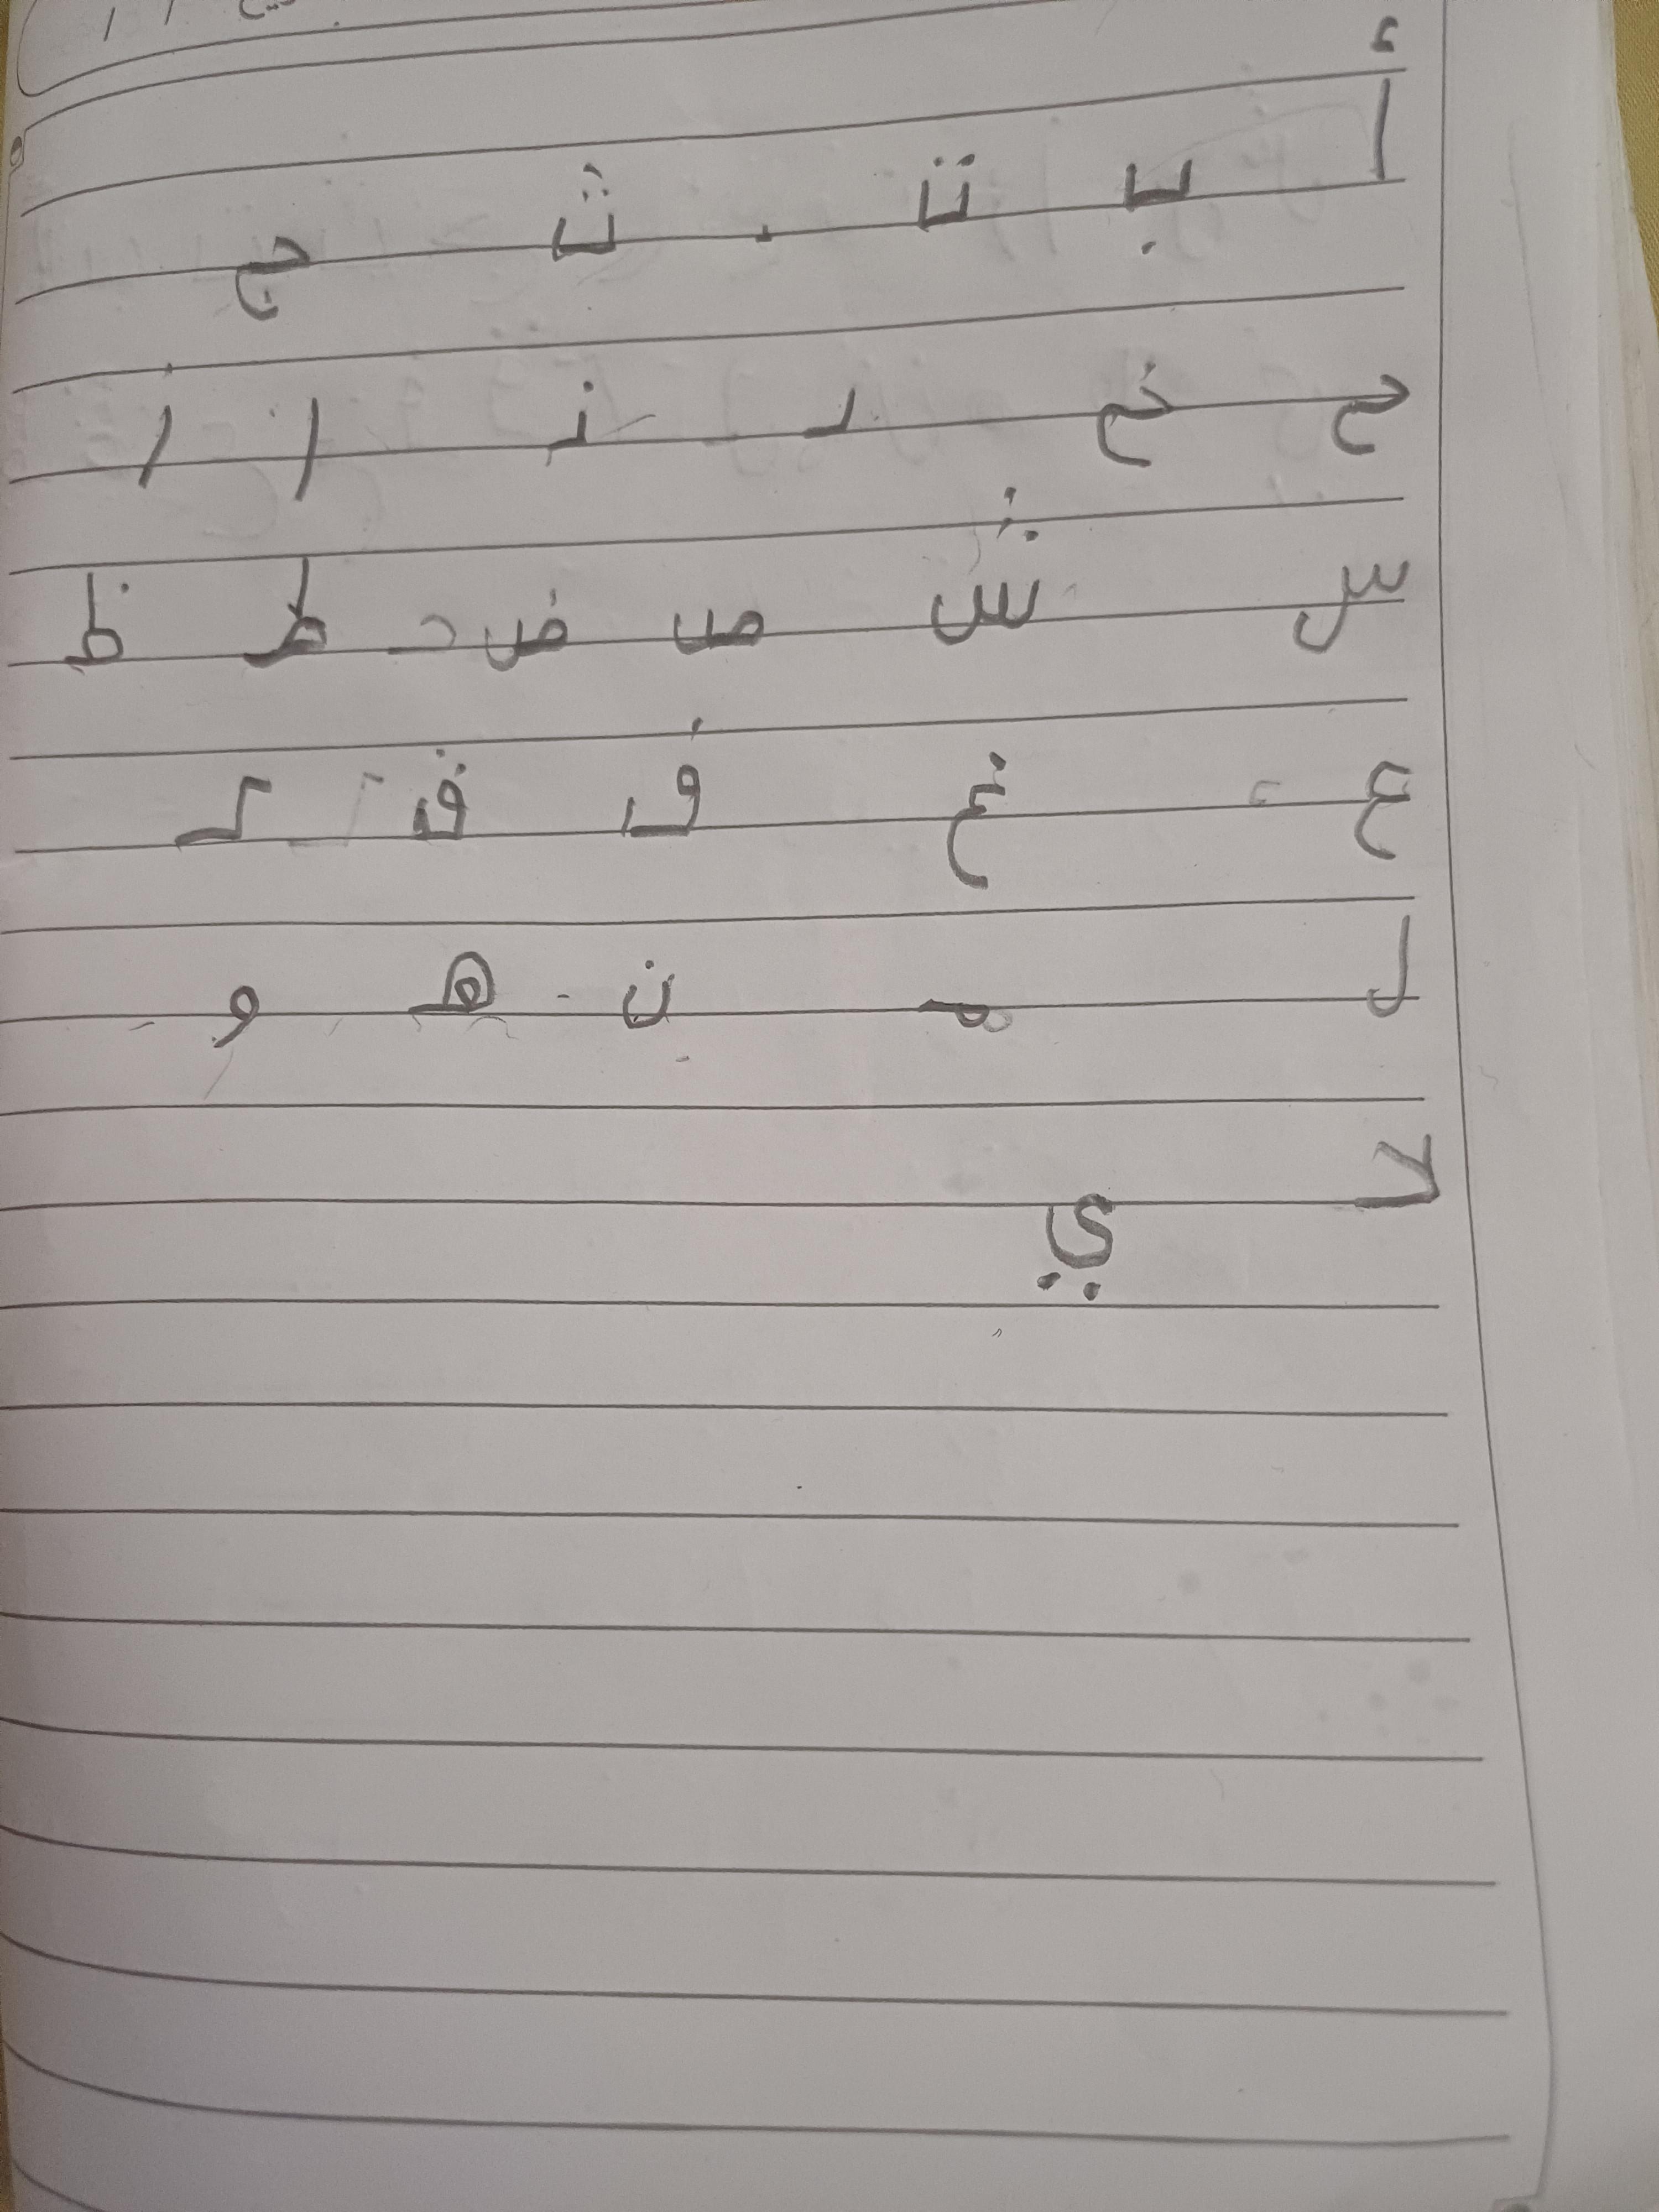 أ ب ت ث ج
ح خ د ذ ر ز
س ش ص ض ط ظ
ع غ ف ق ك
ل م ن هـ و
لا ي